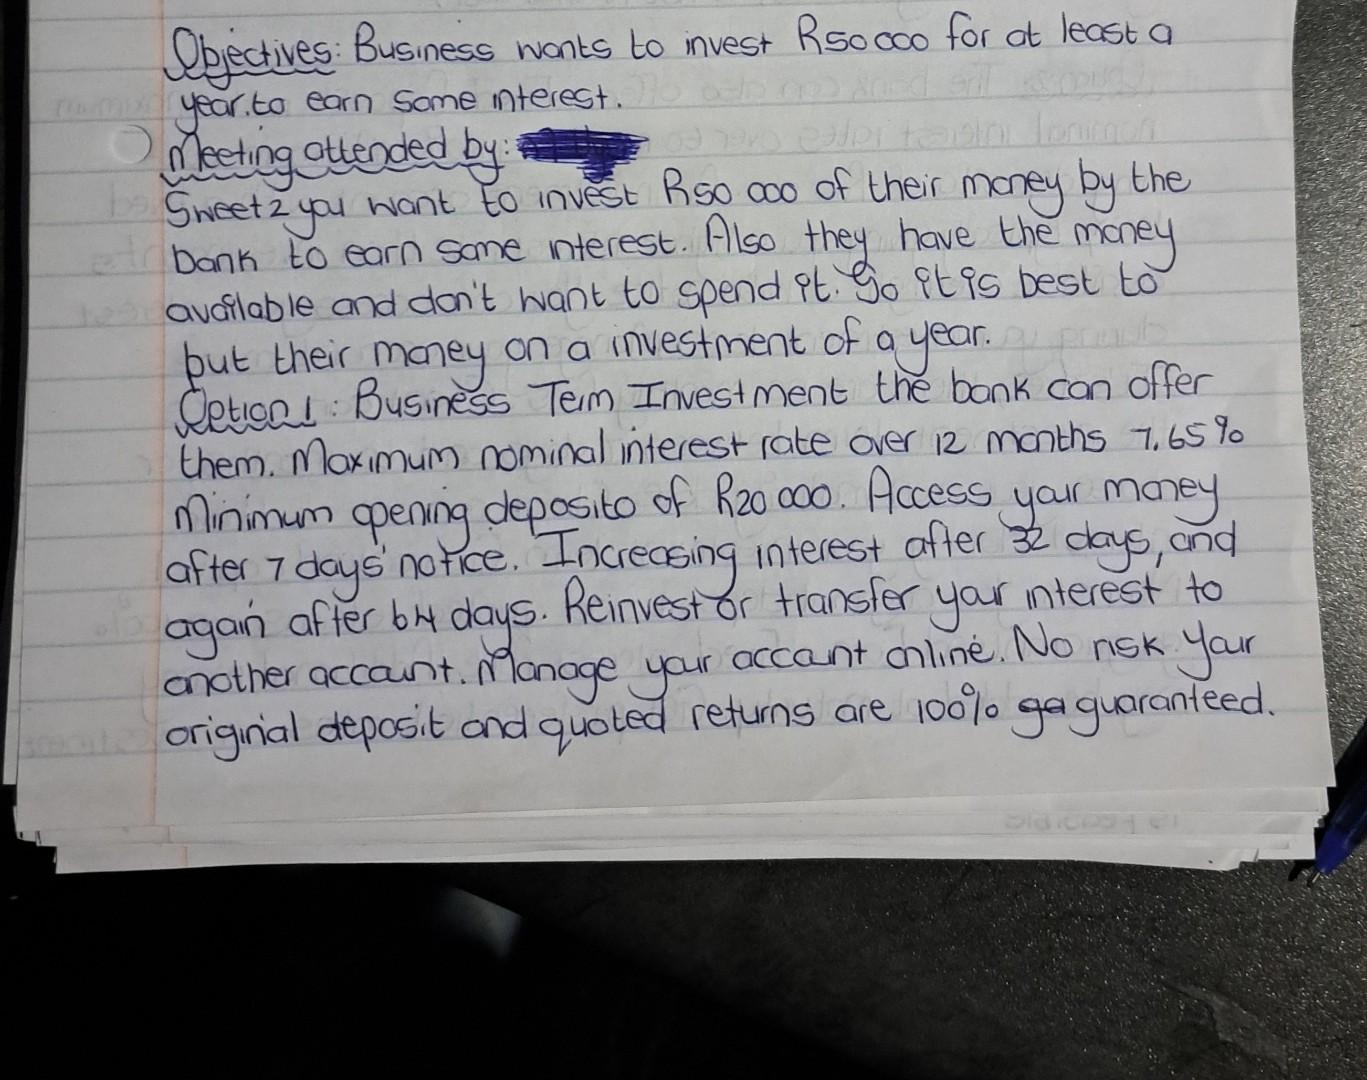 Objectives: Business wants to invest R50 000 for at least a
year.to earn some interest.
Meeting attended by:
Sweet2you want to invest R50 000 of their money by the
bank to earn some interest. Also they have the money
available and don't want to spend it. So it is best to
put their money on a investment of a year.
Option 1: Business Term Investment the bank can offer
them. Maximum nominal interest rate over 12 months 7,65%
Minimum opening deposito of R20 000. Access your money
after 7 days' notice. Increasing interest after 32 days, and
again after 64 days. Reinvest or transfer your interest to
another account. Manage your account online. No risk your
original deposit and quoted returns are 100% guaranteed.